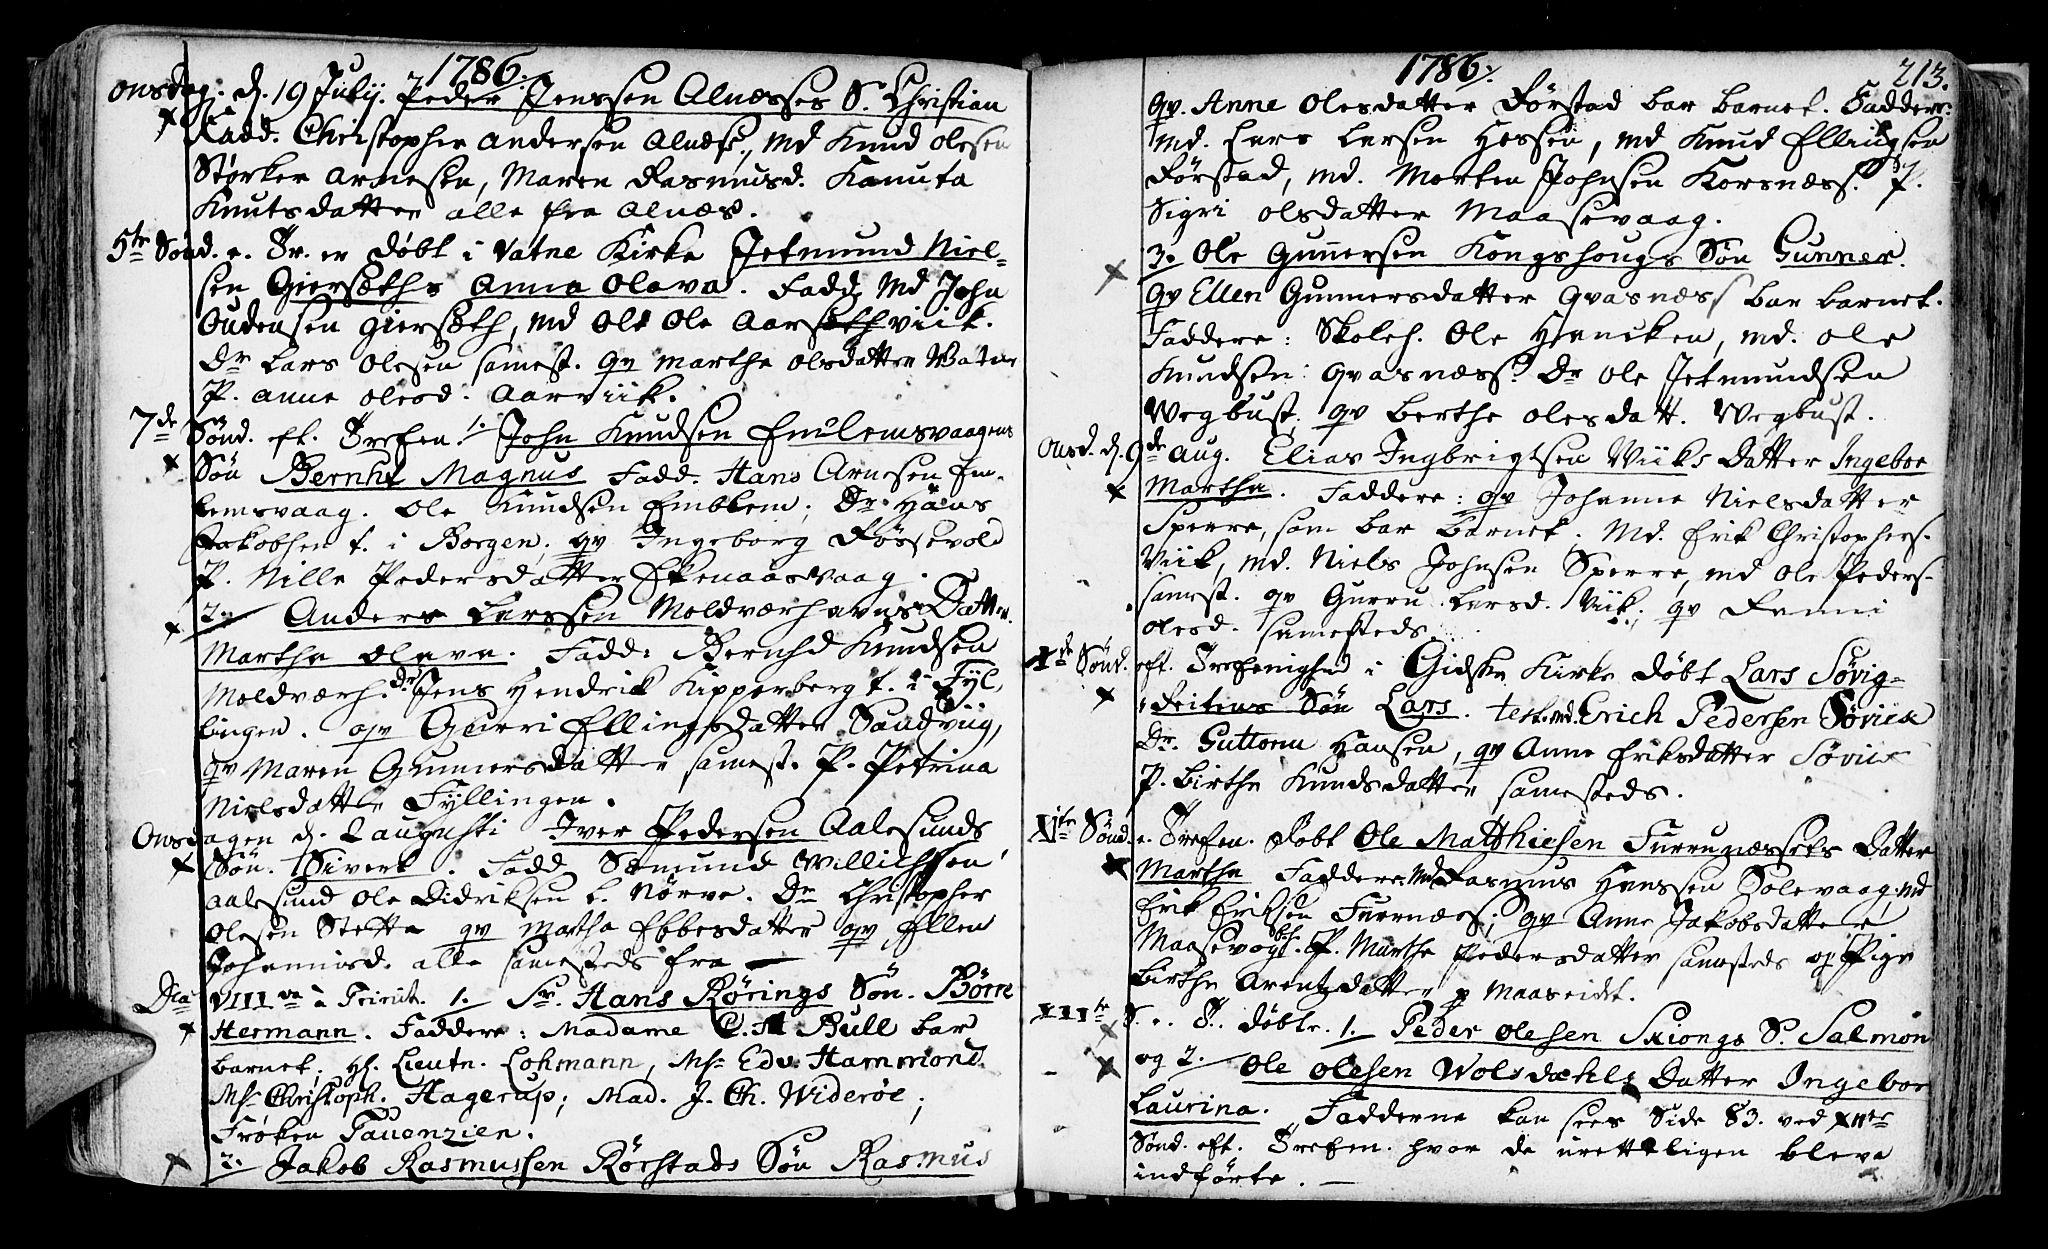 1786.
Onsdag. d. 19 Julij. Peder Jenssen Alnæsses S. Christian
Fadd. Christopher Andersen Alnæs., Md Knud Olesen
Størker Arnesen, Maren Rasmusd. Kanuta
Knutsdatter alle fra Alnæs.
5te Sønd. e. Tr. er døbt i Vatne Kirke Jetmund Niel-
sen Giersæths Anna Olava. Fadd. Md John
Oudensen Giersæth, Md Ole Ole Aarsæthviik.
Dr Lars Olesen samest. qv Marthe Olsdatter Vatne
P. Anne Olesd. Aarviik.
7de Sønd. eft. Trefen. 1. John Knudsen Emlemsvaagens
Søn Bernht Magnus Fadd. Hans Arnesen Em-
lemsvaag. Ole Knudsen Emblem; Dr. Hans
Jakobsen t. i Borgen, qv Ingeborg Røssevold
P. Nille Pedersdatter Ekenaasvaag.
2. Anders Larssen Moldværhavns Datter
Marthe Olava. Fadd: Bernhd Knudsen
Moldværh. dr Jens Hendrick Kipperberg t. i Fyl-
lingen. qv Gurri Ellingsdatter Sandviig,
qv Maren Gunnersdatter samest. P. Petrina
Nielsdatter Fyllingen.
Onsdagen d. 2 Augusti Iver Pedersen Aalesunds
Søn. Sivert. Fadd Sæmund Willichsen
Aalesund Ole Didriksen L. Nørve. Dr Christopher
Olesen Stette qv Martha Ebbesdatter qv Ellen
Johannisd. alle samesteds fra
Dca VIIIva a Trinit. 1. Sr. Hans Rørings Søn. Børre
Hermann. Faddere: Madame C. M Bull bar
barnet; Hl. Lieutn. Lohmann, Ms. Edv. Hammond
Ms. Christoph. Hagerup; Mad. J. Ch. Widerøe;
Frøken Tauenzien.
2. Jakob Rasmussen Rørstads Søn Rasmus
1786. 213.
qv. Anne Olesdatter Rørstad bar barnet. Faddere:
Md. Lars Larsen Hessen, Md Knud Ellingsen
Rørstad, Md. Morten Johnsen Korsnæss. P.
Sigri Olsdatter Maasevaag.
3. Ole Gunnersen Kongshougs Søn Gunner.
qv Ellen Gunnersdatter Qvasnæss bar barnet.
Faddere: Skoleh. Ole Hencken, Md. Ole
Knudsen Qvasnæss. Dr Ole Jetmundsen
Wegbust, qv Berthe Olesdatt. Wegbust.
Onsd. d. 9de Aug. Elias Ingbrigtsen Wiiks Datter Ingebor
Martha. Faddere: qv Johanne Nielsdatter
Sperre, som bar barnet. Md. Erik Christophers.
Viik, Md. Niels Johnsen Sperre, Md Ole Peders.
samest. qv Gurru Larsd. Viik. qv
Olesd. samesteds.
Xde Sønd. eft. Trefenighed i Gidske Kirke døbt Lars Søvig-
Reitens Søn Lars. test. Md. Erich Pedersen Søvick
Dr. Guttorm Hansen, qv Anne Eriksdatter Søvick
P. Birthe Knudsdatter samesteds.
XIte Sønd. e. Trefen. døbt Ole Matthiesen Furrunæssets Datter
Martha Faddere Md Rasmus Hanssen Solevaag. Md
Erik Eriksen Furnæss; qv Anne Jakobsdatter
Maasevog P. Marthe Pedersdatter samesteds og Pige
Birthe Arentzdatter Maaseidet.
XIIte S. e. T. døbte. 1. Peder Olesen Skiongs S. Salmon
og 2. Ole Olesen Wolsdæhls Datter Ingebor
Laurina. Fadderne kan sees Side 83. ved XIIte
Sønd. eft. Trefen. hvor de uretteligen bleve
indførte.